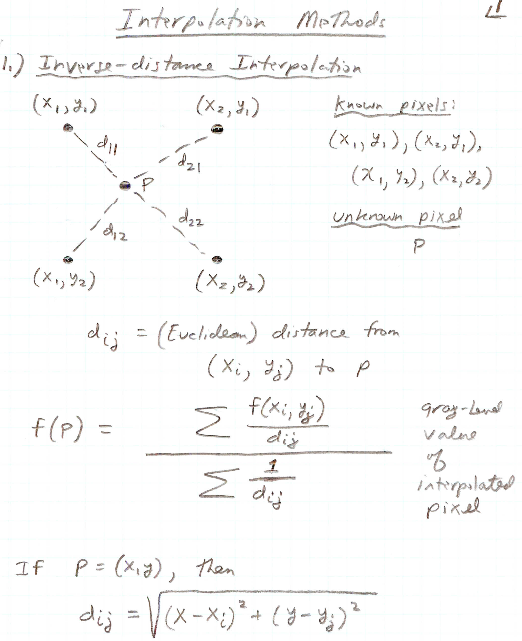 Interpolation Methods
1
1.) Inverse-distance Interpolation
(x₁, y₁) (x₂, y₁)
known pixels:
(x₁, y₁), (x₂, y₁),
(x₁, y₂), (x₂, y₂)
unknown pixel
P
d₁₁
d₂₁
P
d₁₂
d₂₂
(x₁, y₂) (x₂, y₂)
dᵢⱼ = (Euclidean) distance from
(xᵢ, yⱼ) to P
f(P) = ∑ f(xᵢ, yⱼ)/dᵢⱼ / ∑ 1/dᵢⱼ
gray-level
value
of
interpolated
pixel
If P = (x,y), then
dᵢⱼ = √((x-xᵢ)² + (y-yⱼ)²)